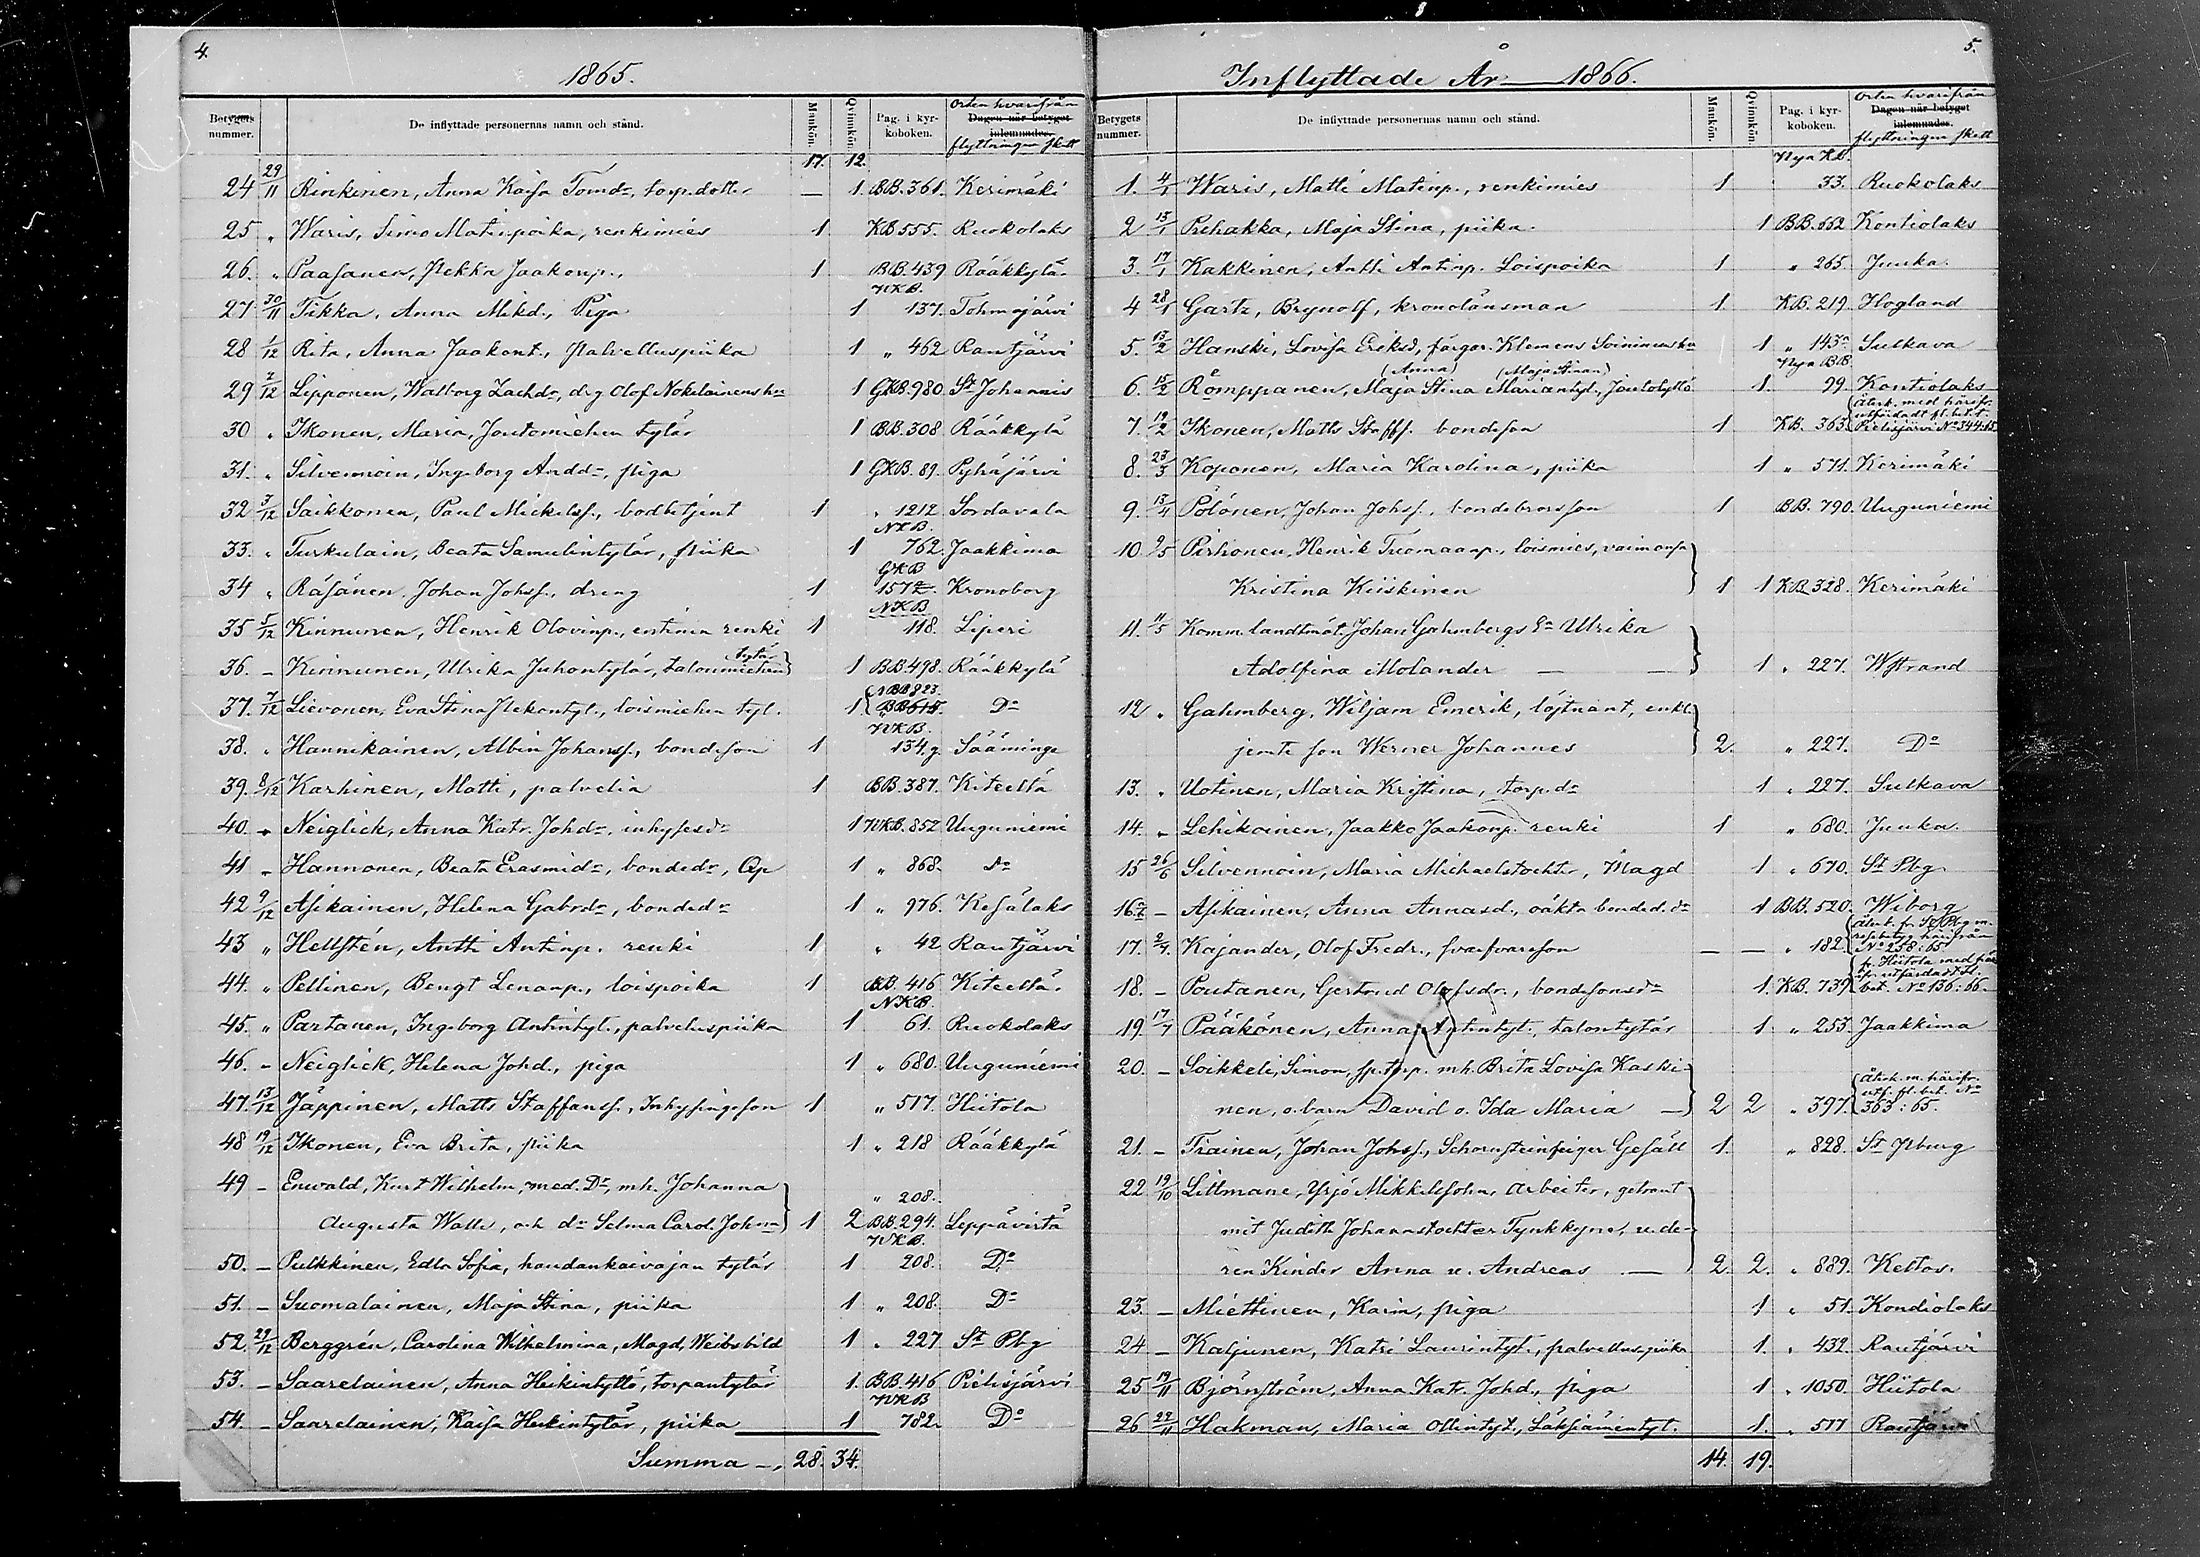 4.
1865.
Betygets nummer. De inflyttade personernas namn och stånd. Mankön. Qvinnkön. Pag. i kyrkoboken. Dagen när betyget inlemnades. Orten hvarifrån flyttningen skett
17. 12.
24 29/11 Rinkinen, Anna Kaisa Tomdr, torp.dotter — 1. BB.361. Kerimäki
25 „ Waris, Simo Matinpoika, renkimies 1 KB 555. Ruokolaks
26. „ Paasanen, Pekka Jaakonp., 1 BB.439 Rääkkylä
27 30/11 Tikka, Anna Mikd., Piga 1 NKB. 137. Tohmajärvi
28 1/12 Rita, Anna Jaakont., Palvelluspiika 1 „ 462 Rautjärvi
29 2/12 Lipponen, Walborg Zachdr, drg Olof Nokelainens hu 1 GKB.980 St Johannis
30 „ Ikonen, Maria, Joutomiehen tytär 1 BB.308 Rääkkylä
31. „ Silvennoin, Ingeborg Anddr, piga 1 GKB.89. Pyhäjärvi
32 3/12 Saikkonen, Paul Mickelss., bodbetjent 1 „ 1212 Sordavala
33. „ Turkulain, Beata Samulintytär, piika 1 NKB. 762. Jaakkima
34 „ Räsänen, Johan Johss., dreng 1 GKB 1572. Kronoborg
35 5/12 Kinnunen, Henrik Olovinp., entinen renki 1 NKB 118. Liperi
36. — Kinnunen, Ulrika Juhontytär, talonmiehen tytär 1 BB.498. Rääkkylä
37. 7/12 Lievonen, Eva Stina Pekontyt., loismiehen tyt. 1 NBB 823. BB 615. Do
38. „ Hannikainen, Albin Johanss., bondeson 1 NKB. 134.g. Sääminge
39. 8/12 Karhinen, Matti, palvelia 1 BB.387. Kiteeltä
40. „ Neiglick, Anna Katr. Johdr, inhysesdr 1 NKB.852 Uuguniemi
41 „ Hannonen, Beata Erasmidr, bondedr, Qp 1 „ 868. Do
42 9/12 Asikainen, Helena Gabrdr, bondedr 1 „ 976. Kesälaks
43 „ Hellstén, Antti Antinp. renki 1 „ 42 Rautjärvi
44. „ Pellinen, Bengt Lenanp., loispoika 1 BB. 416 Kiteeltä.
45. „ Partanen, Ingeborg Antintyt., palveluspiika 1 NKB. 61. Ruokolaks
46. „ Neiglick, Helena Johd., piga 1 „ 680. Uuguniemi
47. 13/12 Jäppinen, Matts Staffanss., Inhysingeson 1 „ 517. Hiitola
48 19/12 Ikonen, Eva Brita, piika 1 „ 218 Rääkkylä
49 — Enwald, Kurt Wilhelm, med. Dr, mh. Johanna „ 208.
Augusta Walle, och dr Selma Carol. Johna 1 2 BB.294. Leppävirta
50. — Pulkkinen, Edla Sofia, haudankaivajan tytär 1 NKB. 208. Do
51. — Suomalainen, Maja Stina, piika 1 „ 208. Do
52. 29/12 Berggrén, Carolina Wilhelmina, Magd, Weibsbild 1 „ 227 St Pbg
53. — Saarelainen, Anna Heikintyttö, torpantytär 1. BB.416 Pielisjärvi
54. — Saarelainen, Kaisa Heikintytär, piika 1 NKB 782. Do
Summa —, 28. 34.
5.
Inflyttade År — 1866.
Betygets nummer. De inflyttade personernas namn och stånd. Mankön. Qvinnkön. Pag. i kyrkoboken. Dagen när betyget inlemnades. Orten hvarifrån flyttningen skett
1. 4/1 Waris, Matti Matinp., renkimies 1 Nya KB. 33. Ruokolaks
2 15/1 Puhakka, Maja Stina, piika. 1 BB.662 Kontiolaks
3. 17/1 Kakkinen, Antti Antinp. Loispoika 1 „ 265. Juuka.
4 28/1 Gartz, Brynolf, kronolänsman 1. KB. 219. Hogland
5. 13/2 Hanski, Lovisa Eriksd, färgar. Klemens Soininens hu 1 „ 143a Sulkava
6. 15/2 Romppanen, Maja Stina (Anna) Mariantyt. (Maja Stinan), Joutotyttö 1. Nya BB. 99. Kontiolaks
7. 19/2 Ikonen, Matts Staffs. bondeson 1 KB. 363. Återk. med härifr. utfärdadt fl. bet. t. Pielisjärvi No 344:65.
8. 23/3 Koponen, Maria Karolina, piika 1 „ 571. Kerimäki
9. 13/4 Pölönen, Johan Johss., bondebrorsson 1 BB. 790. Uuguniemi
10 2/5 Pirhonen, Henrik Tuomaanp., loismies, vaimonsa
Kristina Kiiskinen 1 1 KB 328. Kerimäki
11. 11/5 Komm. landtmät. Johan Gahmbergs Ea Ulrika
Adolfina Molander — 1 „ 227. Wstrand
12 „ Gahmberg, Wiljam Emerik, löjtnant, enkl.
jemte son Werner Johannes 2. „ 227. Do
13. „ Uotinen, Maria Kristina, torp.dr 1 „ 227. Sulkava
14. „ Lehikoinen, Jaakko Jaakonp. renki 1 „ 680. Juuka.
15 26/6 Silvennoin, Maria Michaelstochter, Magd 1 „ 670. St Pbg
16. — Asikainen, Anna Annasd., oäkta bonded. dr 1 BB. 520. Wiborg
17. 2/7. Kajander, Olof Fredr., — — „ 182. Återk. fr. St Pbg m. härifrån No 258:65.
18. — Poutanen, Gertrud Olofsdr., bondesonsdr 1. KB. 739. fr. Hiitola med här ifr. utfärdadt fl. bet. No 136:66.
19. 17/7 Pääkönen, Anna Antintyt. talontytär 1 „ 253. Jaakkima
20. — Soikkeli, Simon, sp.torp. mh. Brita Lovisa Kaski-
nen, o. barn David o. Ida Maria — 2 2 „ 397. Återk. m. härifr. utf. fl. bet. No 363:65.
21. — Tiainen, Johan Johss., Schornsteinfeiger Gesäll 1. „ 828. St Pburg
22. 19/10 Littmane, Yrjö Mikkelssohn, Arbeiter, getraut
mit Judith Johannstochter Tynkkyne, u. de-
ren Kinder Anna u. Andreas — 2. 2. „ 889. Keltos.
23. — Miettinen, Karin, piga 1 „ 51. Kondiolaks
24 — Kaljunen, Katri Laurintyt., palvelluspiika 1. „ 432. Rautjärvi
25 19/11 Björnström, Anna Katr. Johd, piga 1 „ 1050. Hiitola
26 22/11 Hakman, Maria Ollintyt., Läksiämentyt. 1. „ 517 Rautjärvi
14. 19.